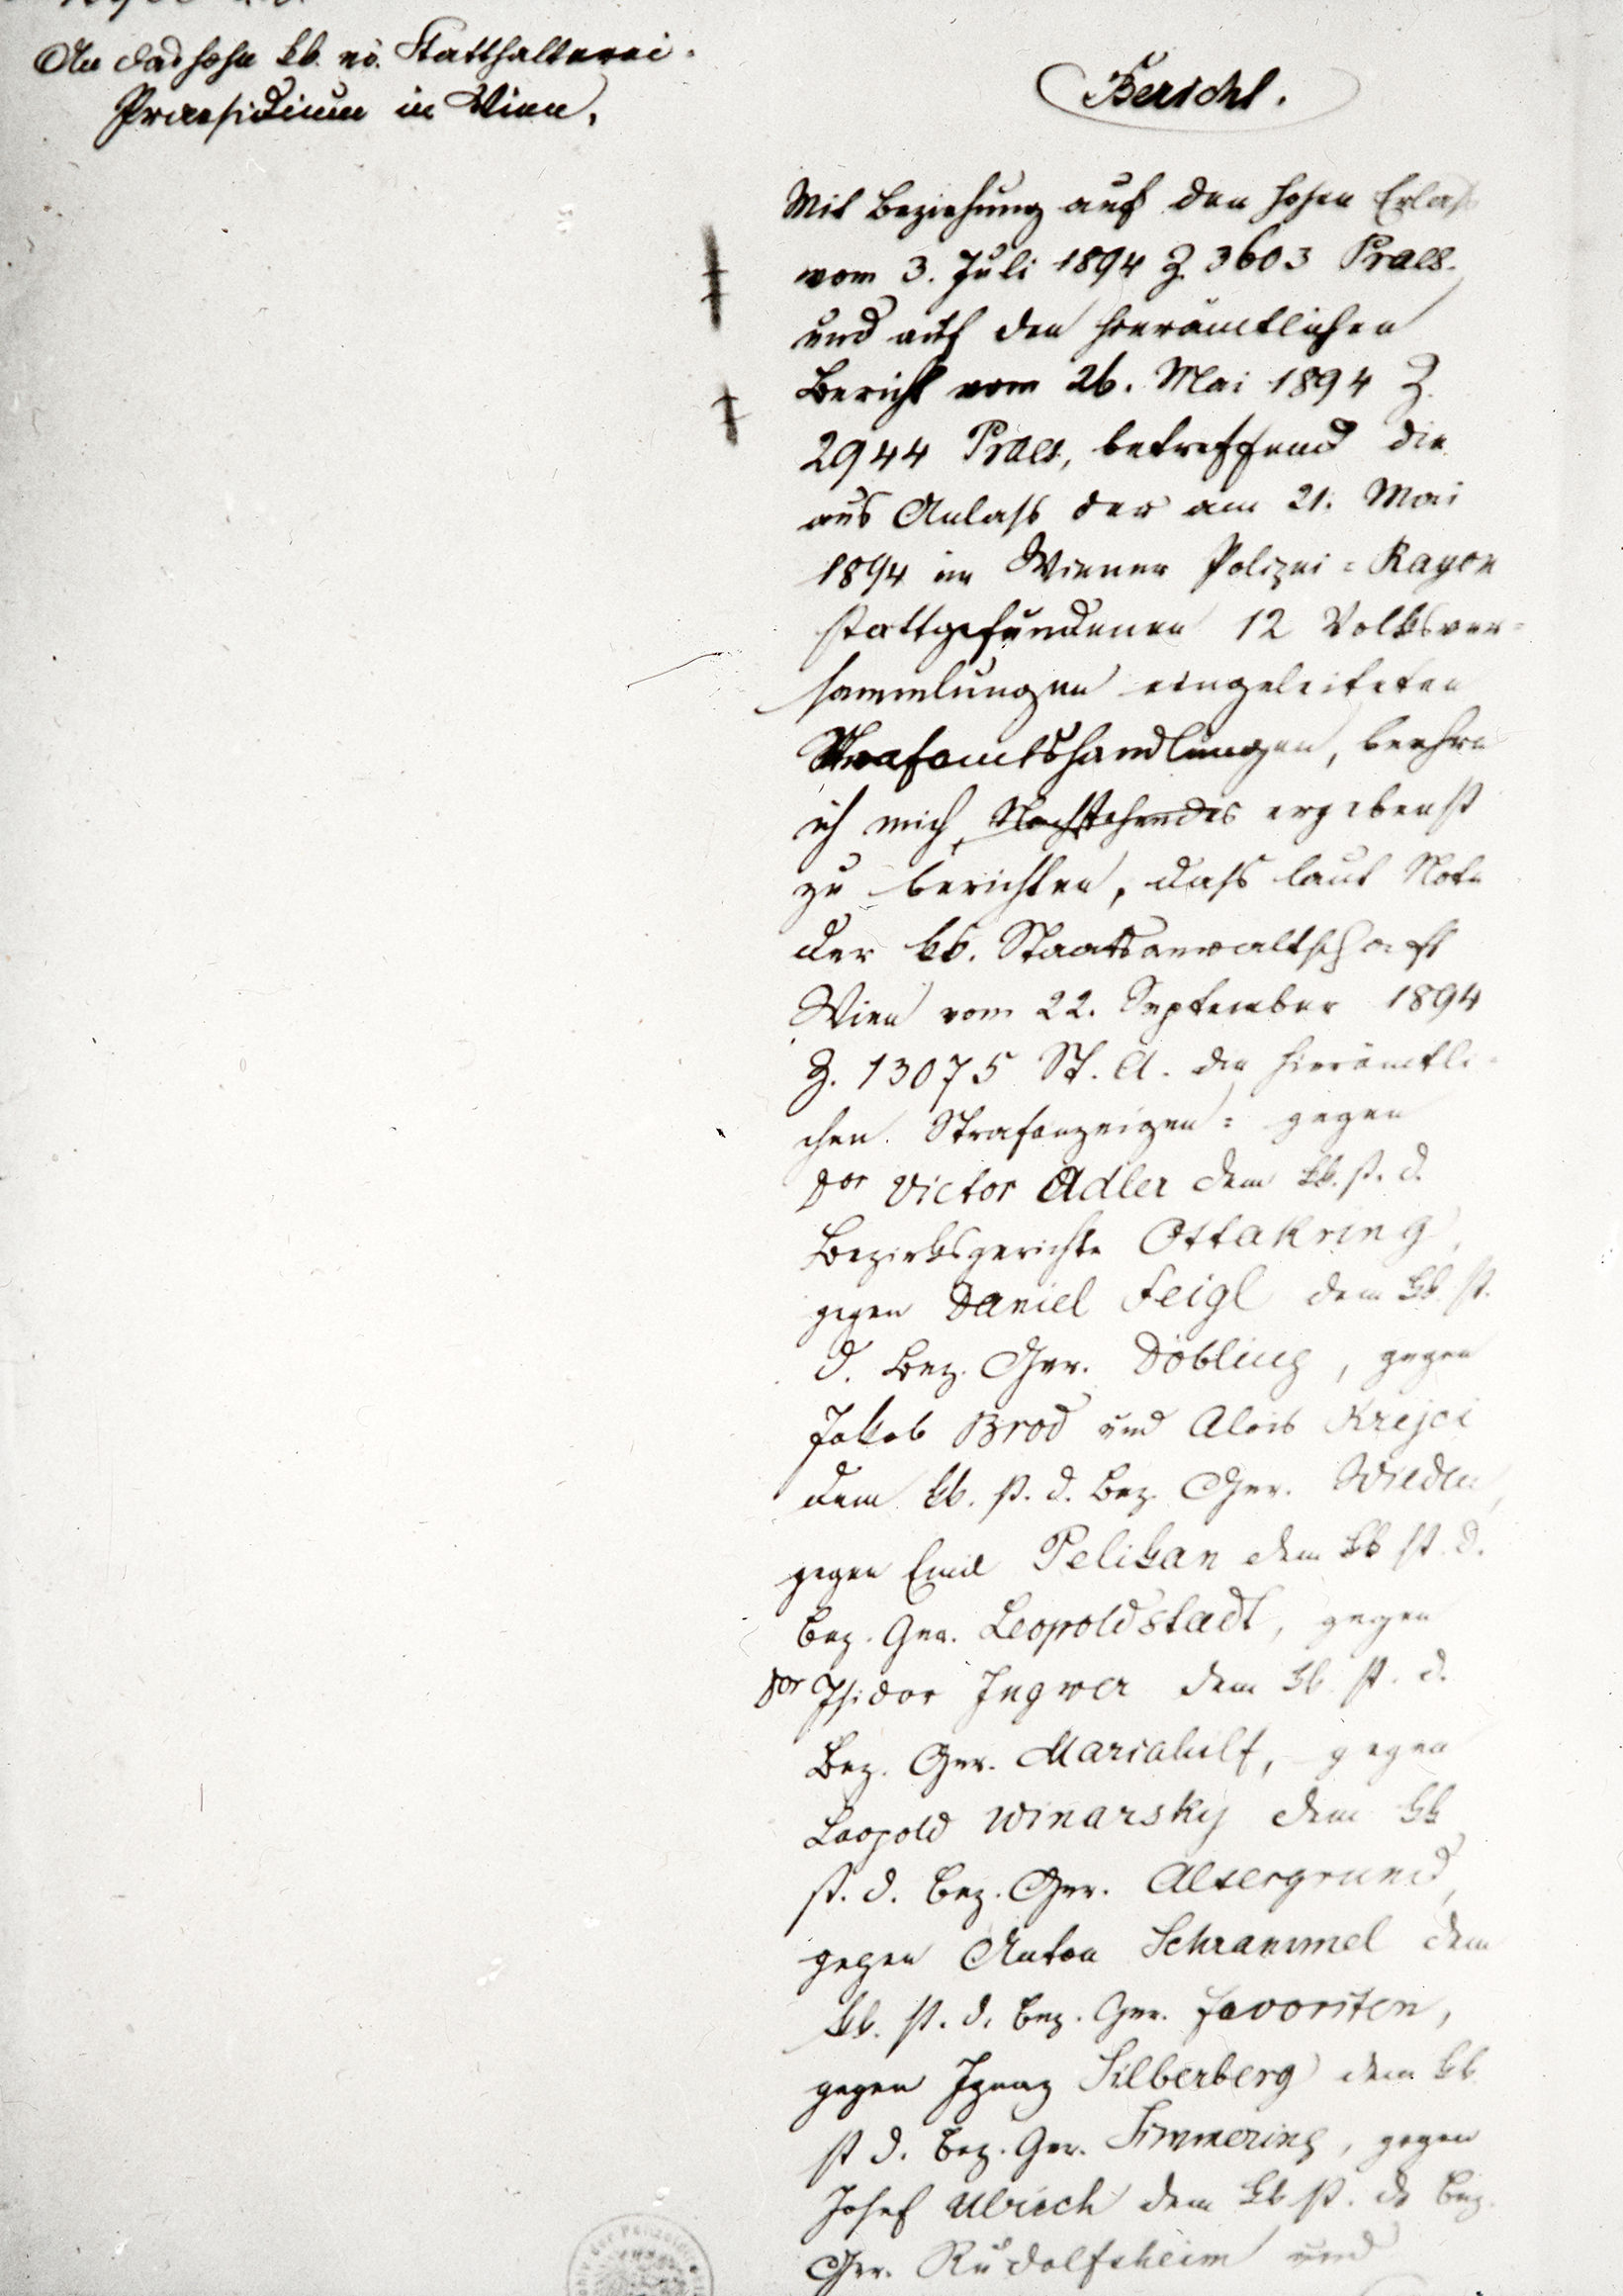 An das hohe kk. nö. Statthalterei-
Praesidium in Wien.
Bericht.
Mit Beziehung auf den hohen Erlaß
vom 3. Juli 1894 Z. 3603 Praes.
und auf den hierämtlichen
Bericht vom 26. Mai 1894 Z.
2944 Praes, betreffend die
aus Anlaß der am 21. Mai
1894 im Wiener Polizei=Rayon
stattgefundenen 12 Volksver=
sammlungen eingeleiteten
Strafamtshandlungen, beehre
ich mich, Nachstehendes ergebenst
zu berichten, daß laut Note
der kk. Staatsanwaltschaft
Wien vom 22. September 1894
Z. 13075 St. A. die hierämtli=
chen Strafanzeigen: gegen
Dor Victor Adler dem kk. st. d.
Bezirksgerichte Ottakring,
gegen Daniel Feigl dem kk st.
d. Bez. Ger. Döbling, gegen
Jakob Brod und Alois Krejci
dem kk. st. d. Bez. Ger. Wieden,
gegen Emil Pelikan dem kk st. d.
Bez. Ger. Leopoldstadt, gegen
Dor Isidor Ingwer dem kk. st. d.
Bez. Ger. Mariahilf, gegen
Leopold Winarsky dem kk
st. d. Bez. Ger. Alsergrund,
gegen Anton Schrammel dem
kk. st. d. Bez. Ger. Favoriten,
gegen Ignaz Silberberg dem kk
st d. Bez. Ger. Simmering, gegen
Josef Ulrich dem kk st. d. Bez.
Ger. Rudolfsheim und